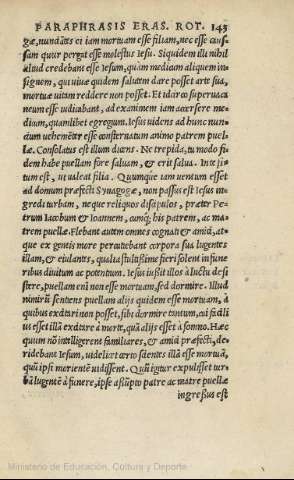 PARAPHRASIS ERAS. ROT. 143
gæ, nunciãtes ei iam mortuam esse filiam, nec esse cau-
sam quur pergat esse molestus Iesu. Siquidem illi nihil
aliud credebant esse Iesum, quàm medicum aliquem in-
signem, qui uiuæ quidem salutem dare posset arte sua,
mortuæ uitam reddere non posset. Et idcirco superuaca
neum esse iudicabant, ad exanimem iam accersere me-
dicum, quamlibet egregium. Iesus uidens ad hunc nun-
cium uehementer esse consternatum animo patrem puel-
læ. Consolatus est illum dicens: Ne trepida, tu modo fi-
dem habe puellam fore saluam, & erit salua. Inte iti-
tum est, ut ualeat filia. Quumque iam uentum esset
ad domum præfecti Synagogæ, non passus est Iesus in-
gredi turbam, neque reliquos discipulos, præter Pe-
trum Iacobum & Ioannem, cumq; his patrem, ac ma-
trem puellæ. Flebant autem omnes cognati & amici, at-
que ex gentis more perturbabant corpora sua lugentes
illam, & eiulantes, qualia stultissime fieri solent in fune
ribus diuitum ac potentum. Iesus iussit illos à luctu desi
stere, puellam eni non esse mortuam, sed dormire. Illud
nimirũ sentiens puellam alijs quidem esse mortuam, à
quibus excitari non posset, sibi dormire tantum, cui facili
us esset illã excitare à morte, quã alijs esset à somno. Hæc
quum nõ intelligerent familiares, & amici præfecti, de-
ridebant Iesum, uidelicet certo scientes illã esse mortuã,
quũ ipsi morientẽ uidissent. Quũ igitur expulisset tur-
bã lugentẽ à funere, ipse assũpto patre ac matre puellæ
ingressus est
Ministerio de Educación, Cultura y Deporte